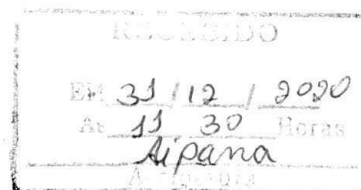 RECEBIDO
EM 31 / 12 / 2020
As 11 30 Horas
Assinatura